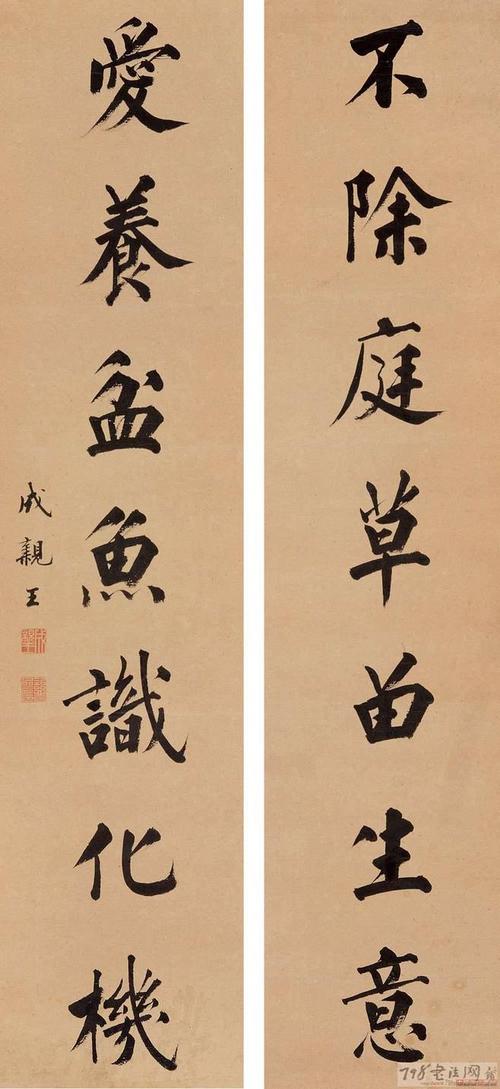 不除庭草留生意
愛養盆魚識化機
成親王
798书法网